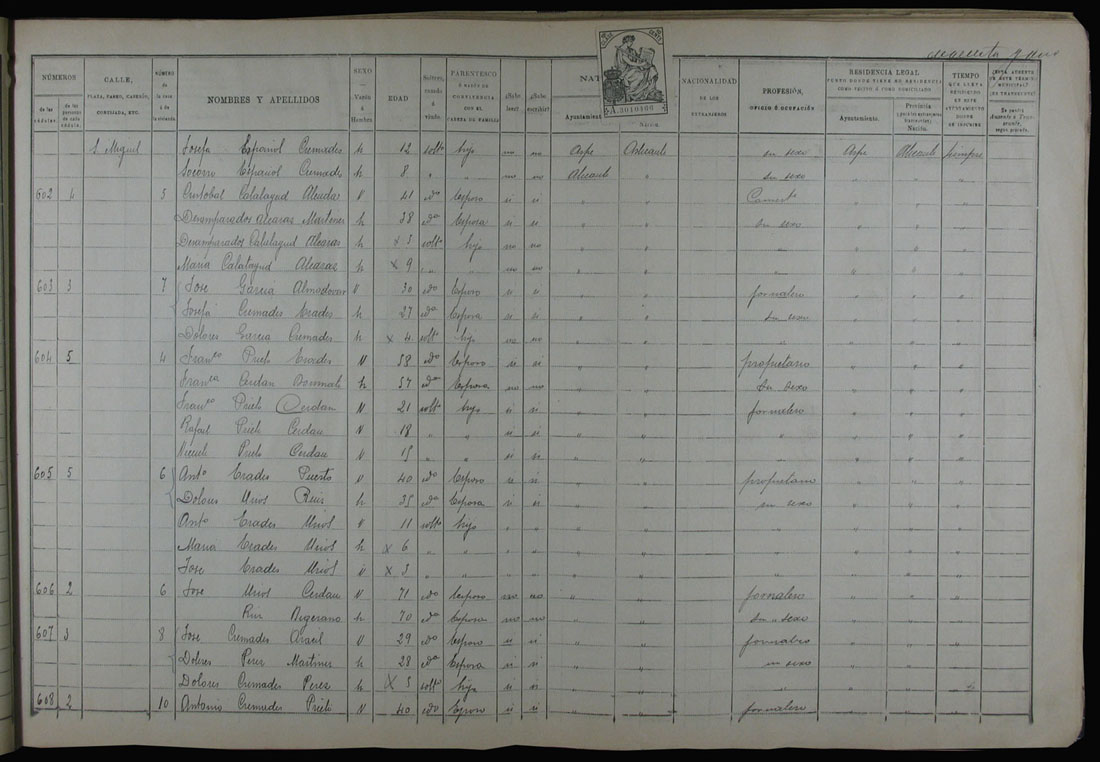 NÚMEROS
de las cédulas.
de las personas de cada cédula.
CALLE,
PLAZA, PASEO, CASERÍO,
CORTIJADA, ETC.
NÚMERO de la casa ó de la vivienda.
NOMBRES Y APELLIDOS
SEXO
Varón ó Hembra
EDAD
Soltero, casado ó viudo.
PARENTESCO
Ó RAZON DE
CONVIVENCIA
CON EL
CABEZA DE FAMILIA
¿Sabe leer?
¿Sabe escribir?
NAT
Ayuntami
NACIONALIDAD
DE LOS
EXTRANJEROS
PROFESIÓN,
OFICIO Ó OCUPACIÓN
RESIDENCIA LEGAL
Ayuntamiento.
Provincia
Nación.
TIEMPO
QUE LLEVA
RESIDIENDO
EN ESTE
AYUNTAMIENTO
S. Miguel Josefa Español Cremades h 12 solt hijo no no Aspe Alicante su sexo Aspe Alicante siempre
Socorro Español Cremades h 8 " " no no Alicante " su sexo " " "
602 4 5 Cristobal Calatayud Alcudas V 41 cdo Esposo si si " "
Desamparados Alcaras Martinez h 38 cda Esposa si si " " su sexo
Desamparados Calatayud Alcaras h x 5 solt hijo no no " "
Maria Calatayud Alcaras h x 9 " " no no " "
603 3 7 Jose Garcia Almodovar V 30 cdo Esposo si si " " jornalero " " "
Josefa Cremades Erades h 27 cda Esposa si si " " su sexo " " "
Dolores Garcia Cremades h x 4 solt hijo no no " " " " "
604 5 4 Franco Prieto Erades V 58 cdo Esposo si si " " propietario " " "
Franca Cerdan h 57 cda Esposa no no " " Su Sexo " " "
Franco Prieto Cerdan V 21 solt hijo si si " " jornalero " " "
Rafael Prieto Cerdan V 18 " " si si " " " " " "
Vicente Prieto Cerdan V 15 " " si si " " " " " "
605 5 6 Anto Erades Puerto V 40 cdo Esposo si si " " propietario " " "
Dolores Mirol Ruiz h 35 cda Esposa si si " " su sexo " " "
Anto Erades Mirol V 11 solto hijo " " " "
Maria Erades Mirol h x 6 " " " " " "
Jose Erades Mirol V x 3 " " " " " "
606 2 6 Jose Mirol Cerdan V 71 cdo Esposo no no " " jornalero " " "
Ruiz h 70 cda Esposa no no " " su sexo " " "
607 3 8 Jose Cremades Aracil V 29 cdo Esposo si si " " jornalero " " "
Dolores Perez Martinez h 28 cda Esposa si si " " su sexo " " "
Dolores Cremades Perez h x 5 solt hijo si si " " " " "
608 2 10 Antonio Cremades Prieto V 40 cdo Esposo si si jornalero